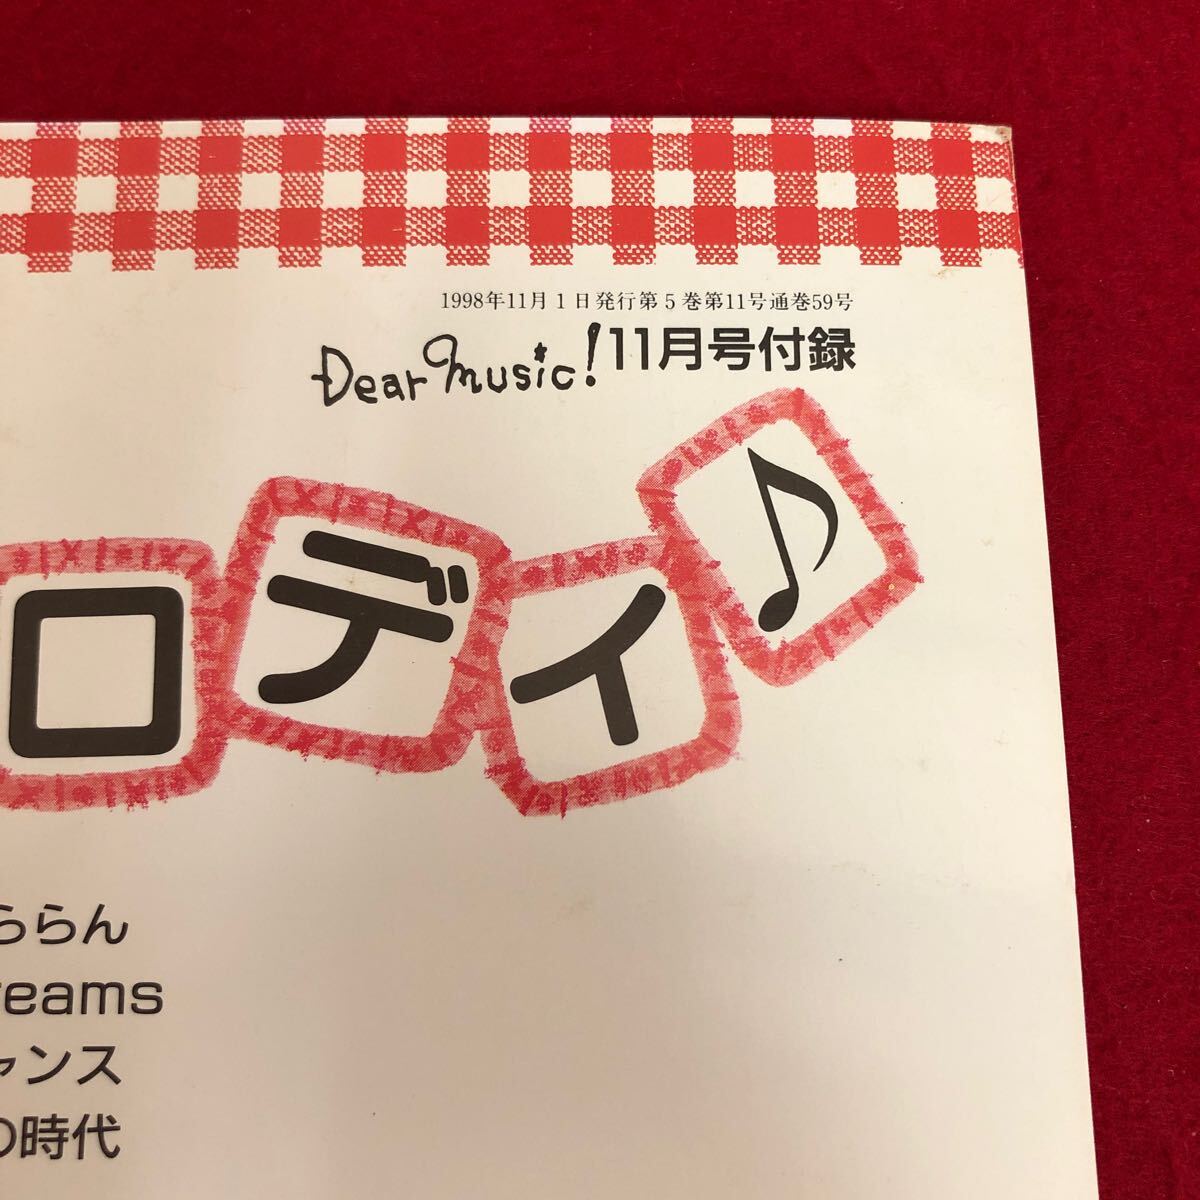 1998年11月1日発行第5巻第11号通巻59号
Dear Music! 11月号付録
ロディ♪
ららん
reams
ャンス
の時代